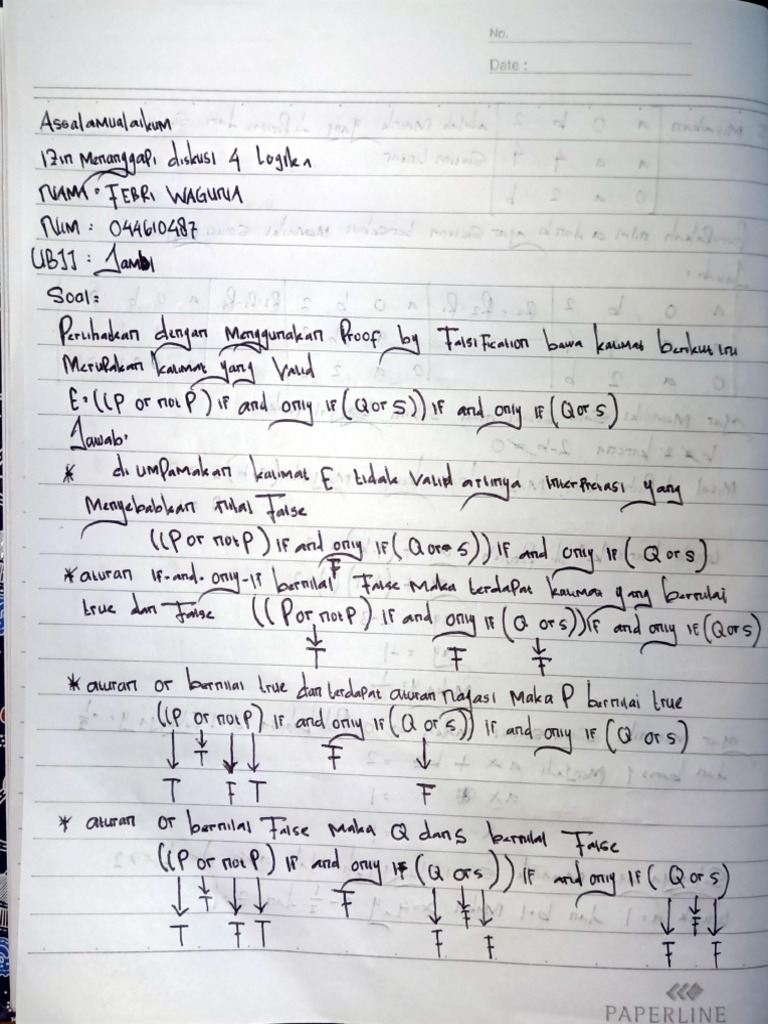 No.
Date :
Assalamualaikum
Izin Menanggapi diskusi 4 Logika
NAMA : FEBRI WAGURIA
NIM : 044610487
UBJJ : Jambi
Soal :
Perlihatkan dengan Menggunakan Proof by Falsification bawa kalimat berikut ini
Merupakan kalimat yang Valid
E : ((P or not P) IF and only IF (Q or S)) IF and only IF (Q or S)
Jawab :
* di umpamakan kalimat E tidak valid artinya interpretasi yang
Menyebabkan nilai False
((P or not P) IF and only IF (Q or S)) IF and only IF (Q or S)
F
* aturan IF-and-only-IF bernilai False Maka terdapat kalimat yang bernilai
true dan False ((P or not P) IF and only IF (Q or S)) IF and only IF (Q or S)
T F F
* aturan or bernilai true dan terdapat aturan nagasi Maka P bernilai true
((P or not P) IF and only IF (Q or S)) IF and only IF (Q or S)
T T F T F F
* aturan or bernilai False Maka Q dan S bernilai False
((P or not P) IF and only IF (Q or S)) IF and only IF (Q or S)
T T F T F F F F F F F
PAPERLINE